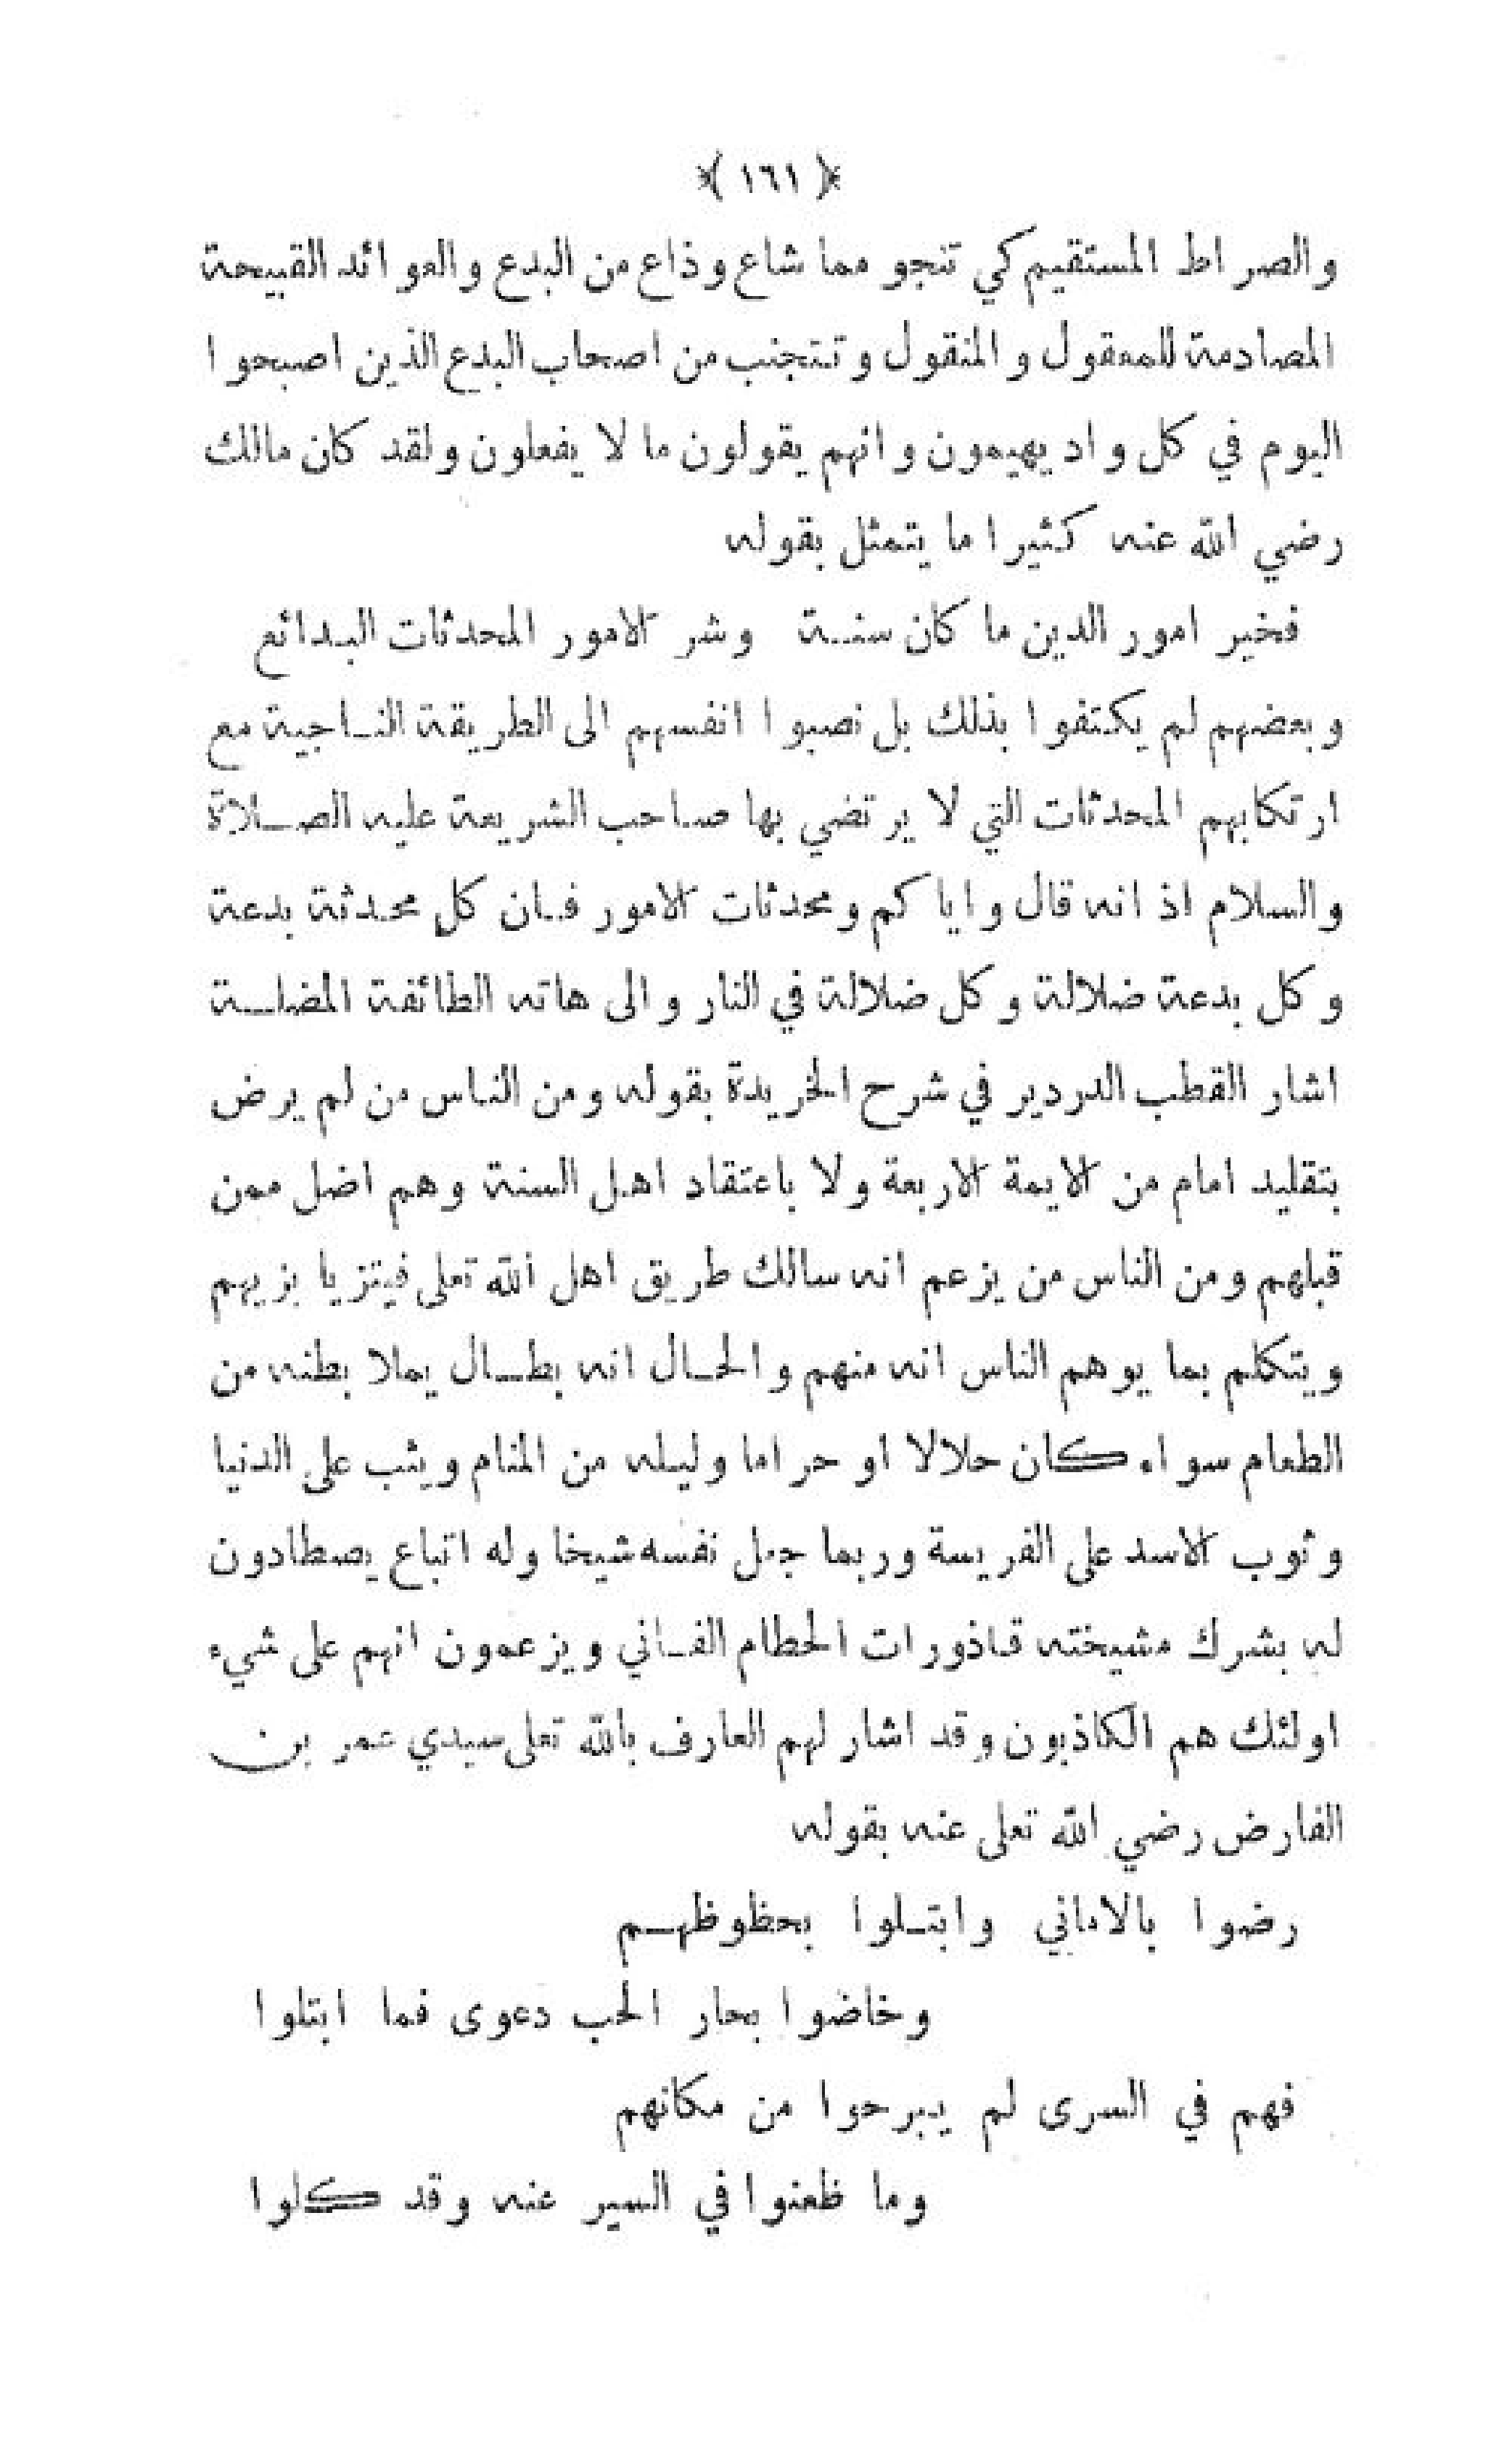 ﴿ ١٦١ ﴾
والصراط المستقيم كي تنجو مما شاع وذاع من البدع والعوائد القبيحة
المصادمة للمعقول والمنقول وتتجنب من اصحاب البدع الذين اصبحوا
اليوم في كل واد يهيمون وانهم يقولون ما لا يفعلون ولقد كان مالك
رضي الله عنه كثيرا ما يتمثل بقوله
فخير امور الدين ما كان سنة وشر الامور المحدثات البدائع
وبعضهم لم يكتفوا بذلك بل نصبوا انفسهم الى الطريقة الناجية مع
ارتكابهم المحدثات التي لا يرتضي بها صاحب الشريعة عليه الصلاة
والسلام اذ انه قال واياكم ومحدثات الامور فان كل محدثة بدعة
وكل بدعة ضلالة وكل ضلالة في النار والى هاته الطائفة المضلة
اشار القطب الدردير في شرح الخريدة بقوله ومن الناس من لم يرض
بتقليد امام من الايمة الاربعة ولا باعتقاد اهل السنة وهم اضل ممن
قبلهم ومن الناس من يزعم انه سالك طريق اهل الله تعلى فيتزيا بزيهم
ويتكلم بما يوهم الناس انه منهم والحال انه بطال يملا بطنه من
الطعام سواء كان حلالا او حراما وليله من المنام ويثب على الدنيا
وثوب الاسد على الفريسة وربما جعل نفسه شيخا وله اتباع يصطادون
له بشرك مشيخته قاذورات الحطام الفاني ويزعمون انهم على شيء
اولئك هم الكاذبون وقد اشار لهم العارف بالله تعلى سيدي عمر بن
الفارض رضي الله تعلى عنه بقوله
رضوا بالاماني وابتلوا بحظوظهم
وخاضوا بحار الحب دعوى فما ابتلوا
فهم في السرى لم يبرحوا من مكانهم
وما ظعنوا في السير عنه وقد كلوا